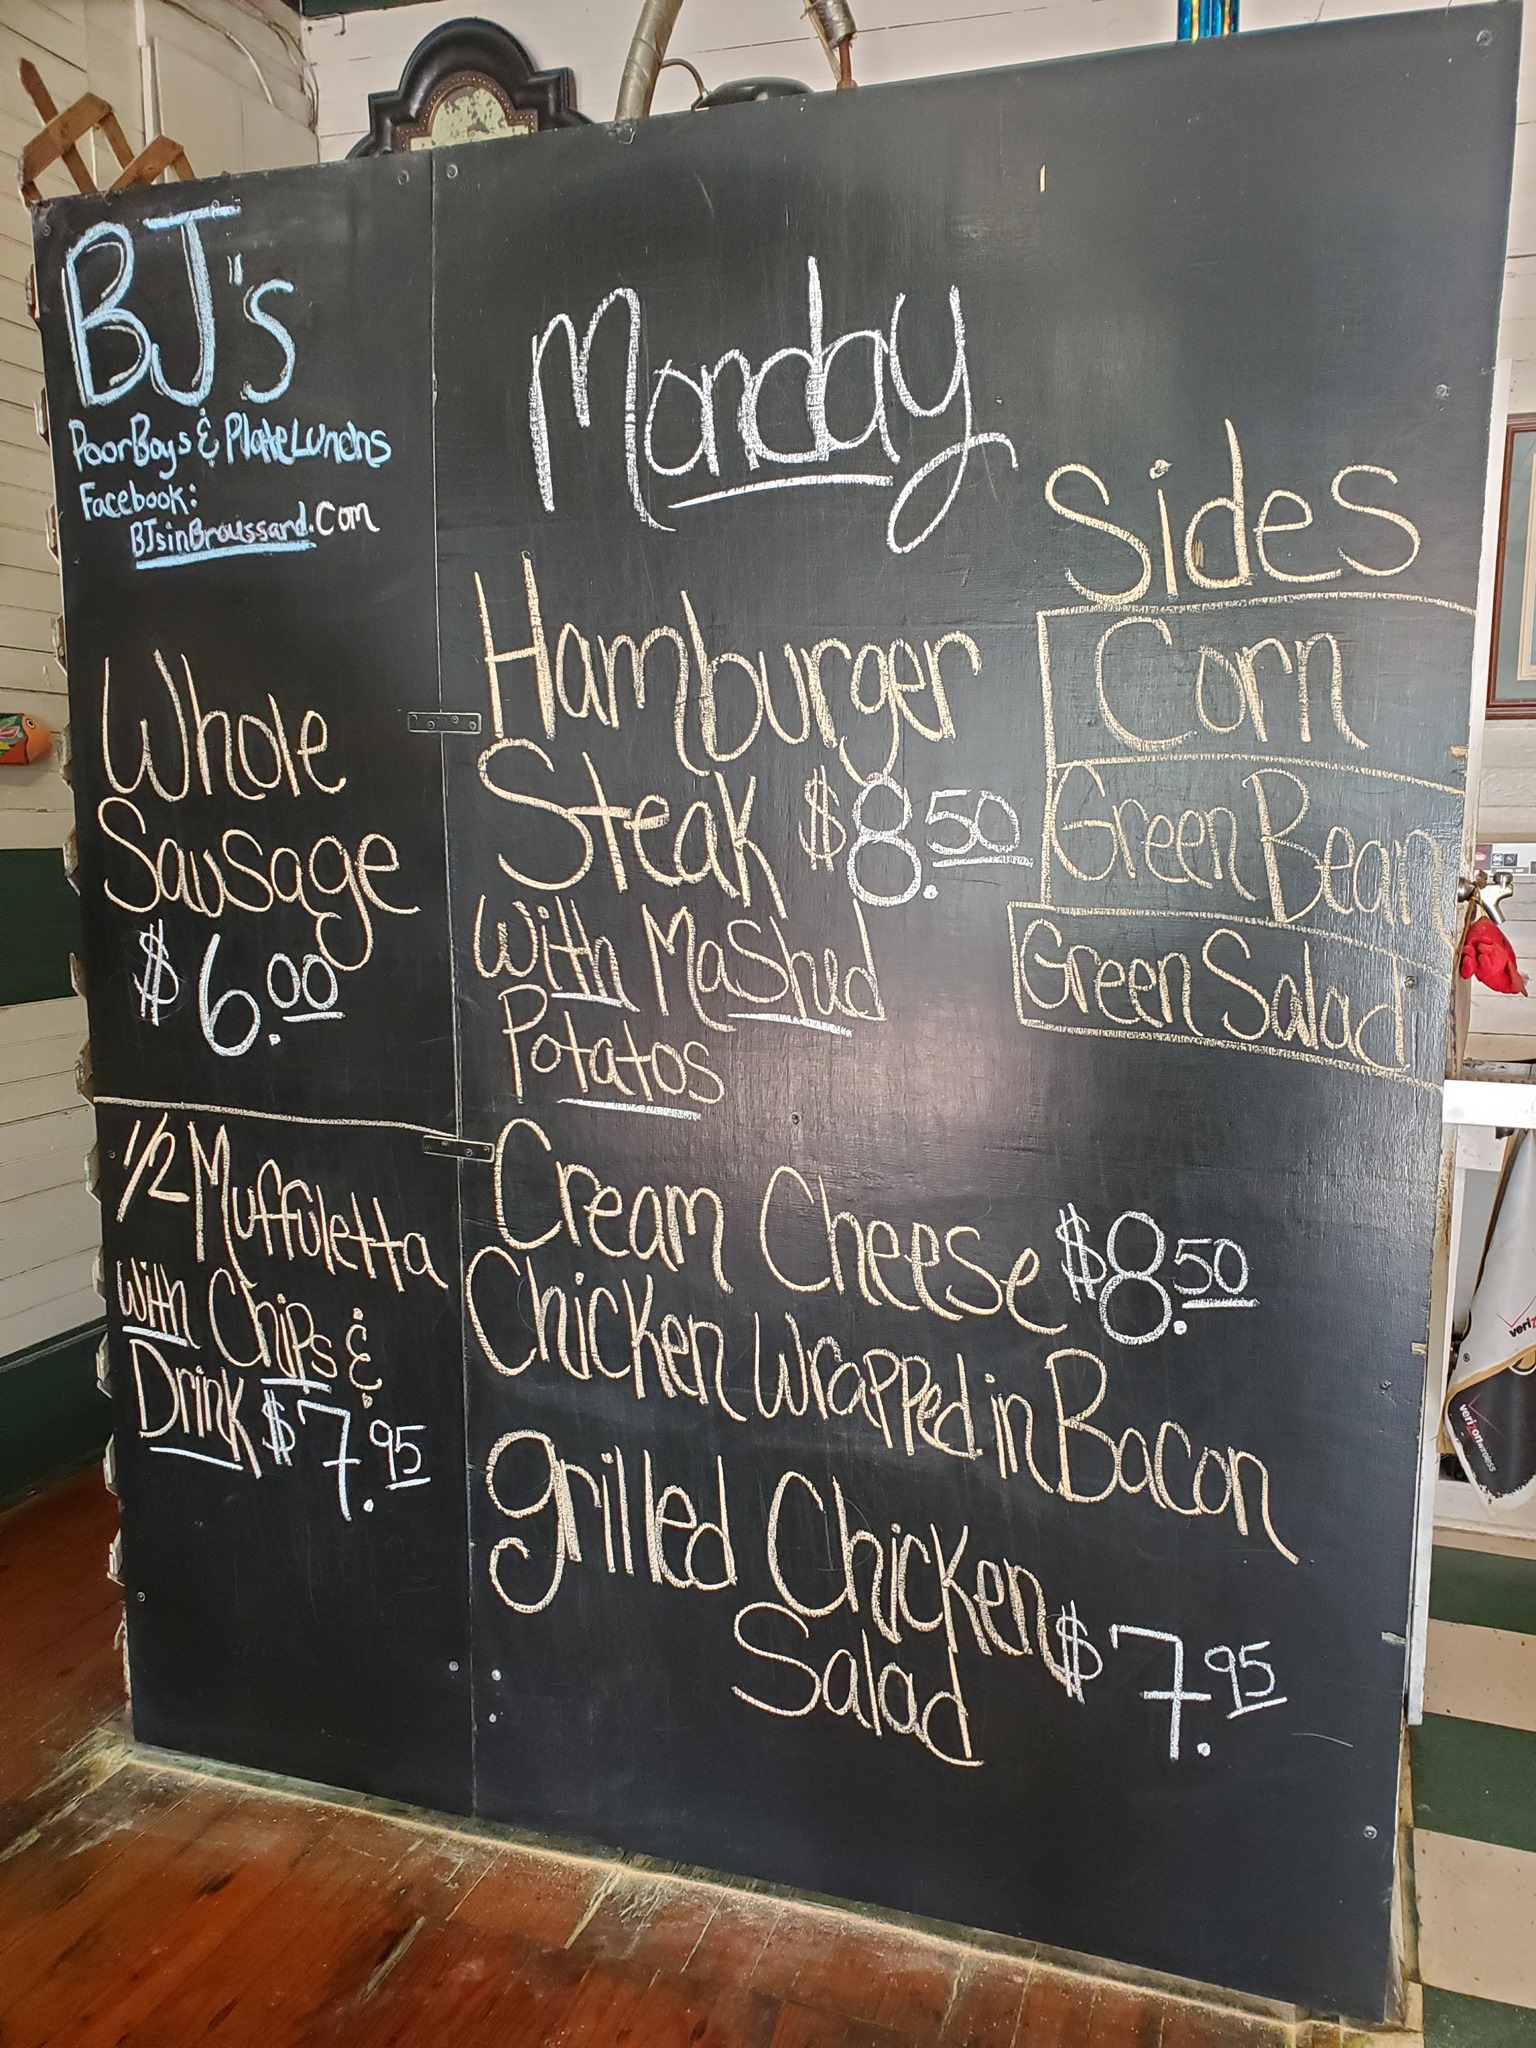 BJ's
PoorBoys & PlateLunchs
Facebook:
BJsinBroussard.Com
Whole
Sausage
$6.00
1/2 Muffuletta
with Chips &
Drink $7.95
Monday
Hamburger
Steak $8.50
With MaShed
Potatos
Cream Cheese $8.50
Chicken Wrapped in Bacon
Grilled Chicken $7.95
Salad
Sides
Corn
Green Bean
Green Salad
verizon wireless